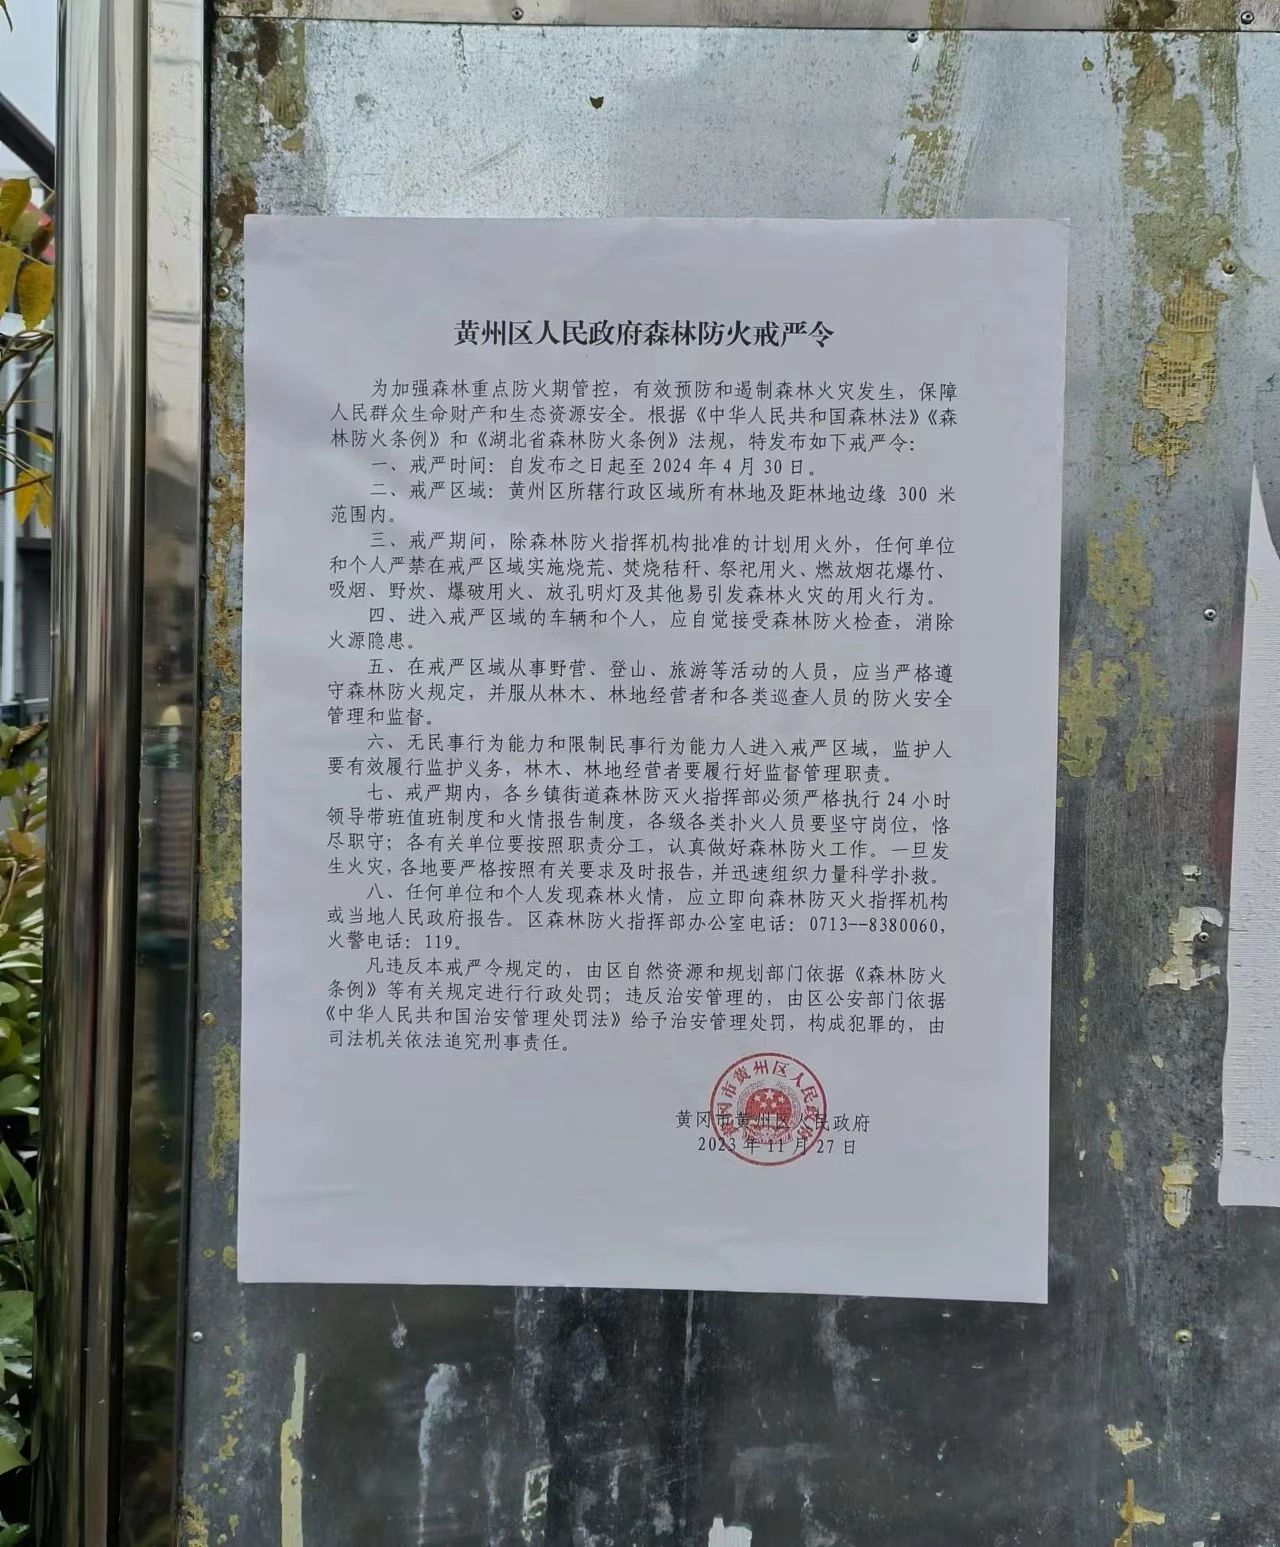 黄州区人民政府森林防火戒严令
为加强森林重点防火期管控，有效预防和遏制森林火灾发生，保障
人民群众生命财产和生态资源安全。根据《中华人民共和国森林法》《森
林防火条例》和《湖北省森林防火条例》法规，特发布如下戒严令：
一、戒严时间：自发布之日起至 2024 年 4 月 30 日。
二、戒严区域：黄州区所辖行政区域所有林地及距林地边缘 300 米
范围内。
三、戒严期间，除森林防火指挥机构批准的计划用火外，任何单位
和个人严禁在戒严区域实施烧荒、焚烧秸秆、祭祀用火、燃放烟花爆竹、
吸烟、野炊、爆破用火、放孔明灯及其他易引发森林火灾的用火行为。
四、进入戒严区域的车辆和个人，应自觉接受森林防火检查，消除
火源隐患。
五、在戒严区域从事野营、登山、旅游等活动的人员，应当严格遵
守森林防火规定，并服从林木、林地经营者和各类巡查人员的防火安全
管理和监督。
六、无民事行为能力和限制民事行为能力人进入戒严区域，监护人
要有效履行监护义务，林木、林地经营者要履行好监督管理职责。
七、戒严期内，各乡镇街道森林防灭火指挥部必须严格执行 24 小时
领导带班值班制度和火情报告制度，各级各类扑火人员要坚守岗位，恪
尽职守；各有关单位要按照职责分工，认真做好森林防火工作。一旦发
生火灾，各地要严格按照有关要求及时报告，并迅速组织力量科学扑救。
八、任何单位和个人发现森林火情，应立即向森林防灭火指挥机构
或当地人民政府报告。区森林防火指挥部办公室电话：0713--8380060，
火警电话：119。
凡违反本戒严令规定的，由区自然资源和规划部门依据《森林防火
条例》等有关规定进行行政处罚；违反治安管理的，由区公安部门依据
《中华人民共和国治安管理处罚法》给予治安管理处罚，构成犯罪的，由
司法机关依法追究刑事责任。
黄冈市黄州区人民政府
黄冈市黄州区人民政府
2023 年 11 月 27 日